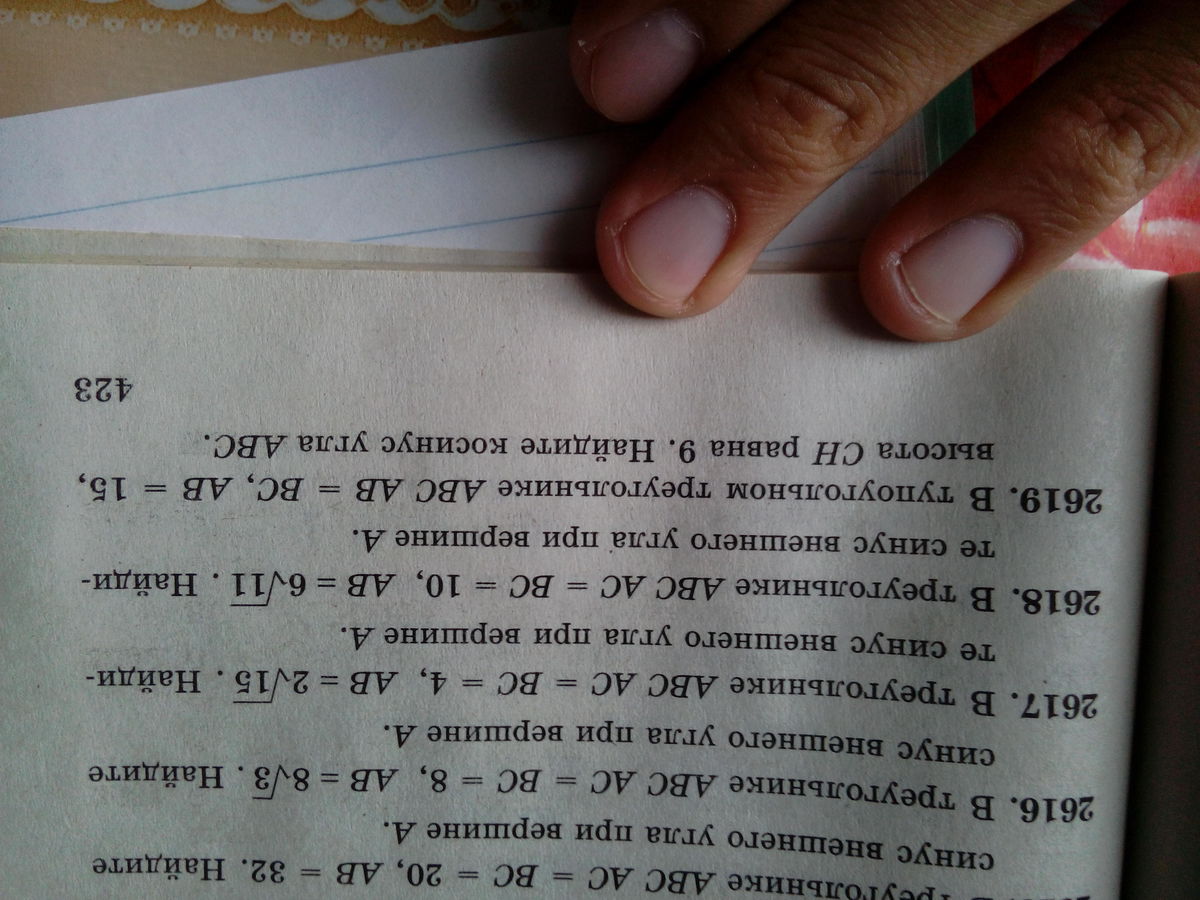 треугольнике ABC AC = BC = 20, AB = 32. Найдите
синус внешнего угла при вершине A.
2616. В треугольнике ABC AC = BC = 8, AB = 8√3 . Найдите
синус внешнего угла при вершине A.
2617. В треугольнике ABC AC = BC = 4, AB = 2√15 . Найди-
те синус внешнего угла при вершине A.
2618. В треугольнике ABC AC = BC = 10, AB = 6√11 . Найди-
те синус внешнего угла при вершине A.
2619. В тупоугольном треугольнике ABC AB = BC, AB = 15,
высота CH равна 9. Найдите косинус угла ABC.
423